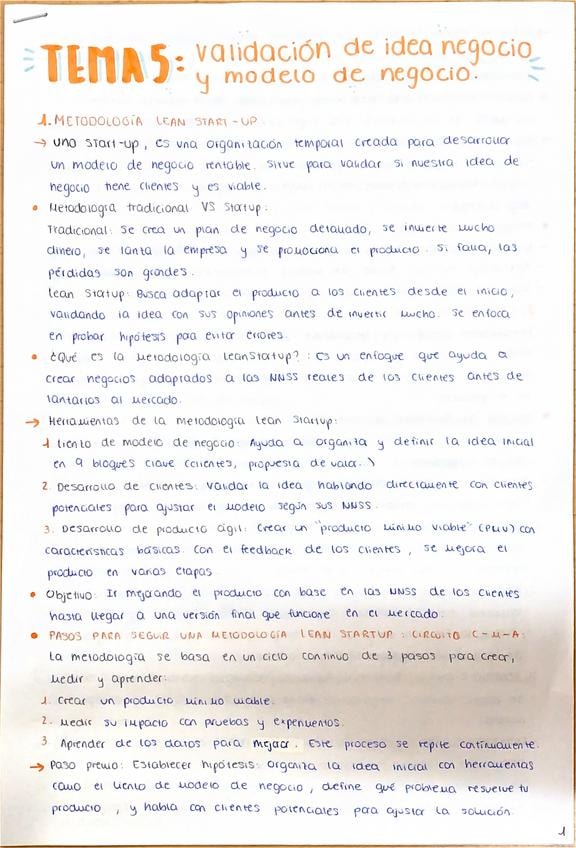 TEMA 5: validación de idea negocio
y modelo de negocio.
1. METODOLOGÍA LEAN START-UP
→ Uno start-up, es una organitación temporal creada para desarrollar
un modelo de negocio rentable. Sirve para validar si nuestra idea de
negocio tiene clientes y es viable.
• Metodología tradicional VS Startup:
Tradicional: Se crea un plan de negocio detallado, se invierte mucho
dinero, se lanta la empresa y se promociona el producto. Si falla, las
pérdidas son grandes.
Lean Startup: Busca adaptar el producto a los clientes desde el inicio,
validando la idea con sus opiniones antes de invertir mucho. Se enfoca
en probar hipótesis para evitar errores.
• ¿Qué es la metodología leanStartup? : Es un enfoque que ayuda a
crear negocios adaptados a las NNSS reales de los clientes antes de
lantarlos al mercado.
→ Herramientas de la metodología Lean Startup:
1 liento de modelo de negocio: Ayuda a organita y definir la idea inicial
en 9 bloques clave (clientes, propuesta de valor.)
2. Desarrollo de clientes: validar la idea hablando directamente con clientes
potenciales para ajustar el modelo según sus NNSS.
3. Desarrollo de producto ágil: Crear un "producto mínimo viable" (PMV) con
características básicas. Con el feedback de los clientes, se mejora el
producto en varias etapas
• Objetivo: Ir mejorando el producto con base en las NNSS de los clientes
hasta llegar a una versión final que funcione en el mercado.
• PASOS PARA SEGUIR UNA METODOLOGÍA LEAN STARTUP: CIRCUITO C-M-A:
La metodología se basa en un ciclo continuo de 3 pasos para crear,
medir y aprender:
1. Crear un producto mínimo viable.
2. Medir su impacto con pruebas y experimentos.
3 Aprender de los datos para mejorar. Este proceso se repite continuamente.
→ Paso previo: Establecer hipótesis: organiza la idea inicial con herramientas
como el liento de modelo de negocio, define qué problema resuelve tu
producto, y habla con clientes potenciales para ajustar la solución.
1